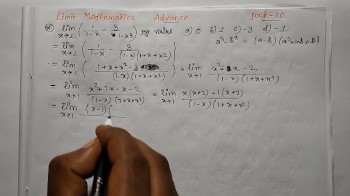 Limit Mathematics Advance
Part-20
lim x→2 (1/1-x - 3/1-x3) এর value a) 0 b) 1 c) -3 d) -1
= lim x→1 {1/1-x - 3/(1-x)(1+x+x²)} a³-b³ = (a-b)(a²+ab+b²)
= lim x→1 {1+x+x²-3/(1-x)(1+x+x²)} = lim x→1 x²+x-2/(1-x)(1+x+x²)
= lim x→1 x²+2x-x-2/(1-x)(1+x+x²) = lim x→1 x(x+2)-1(x+2)/(1-x)(1+x+x²)
= lim x→1 (x-1)(